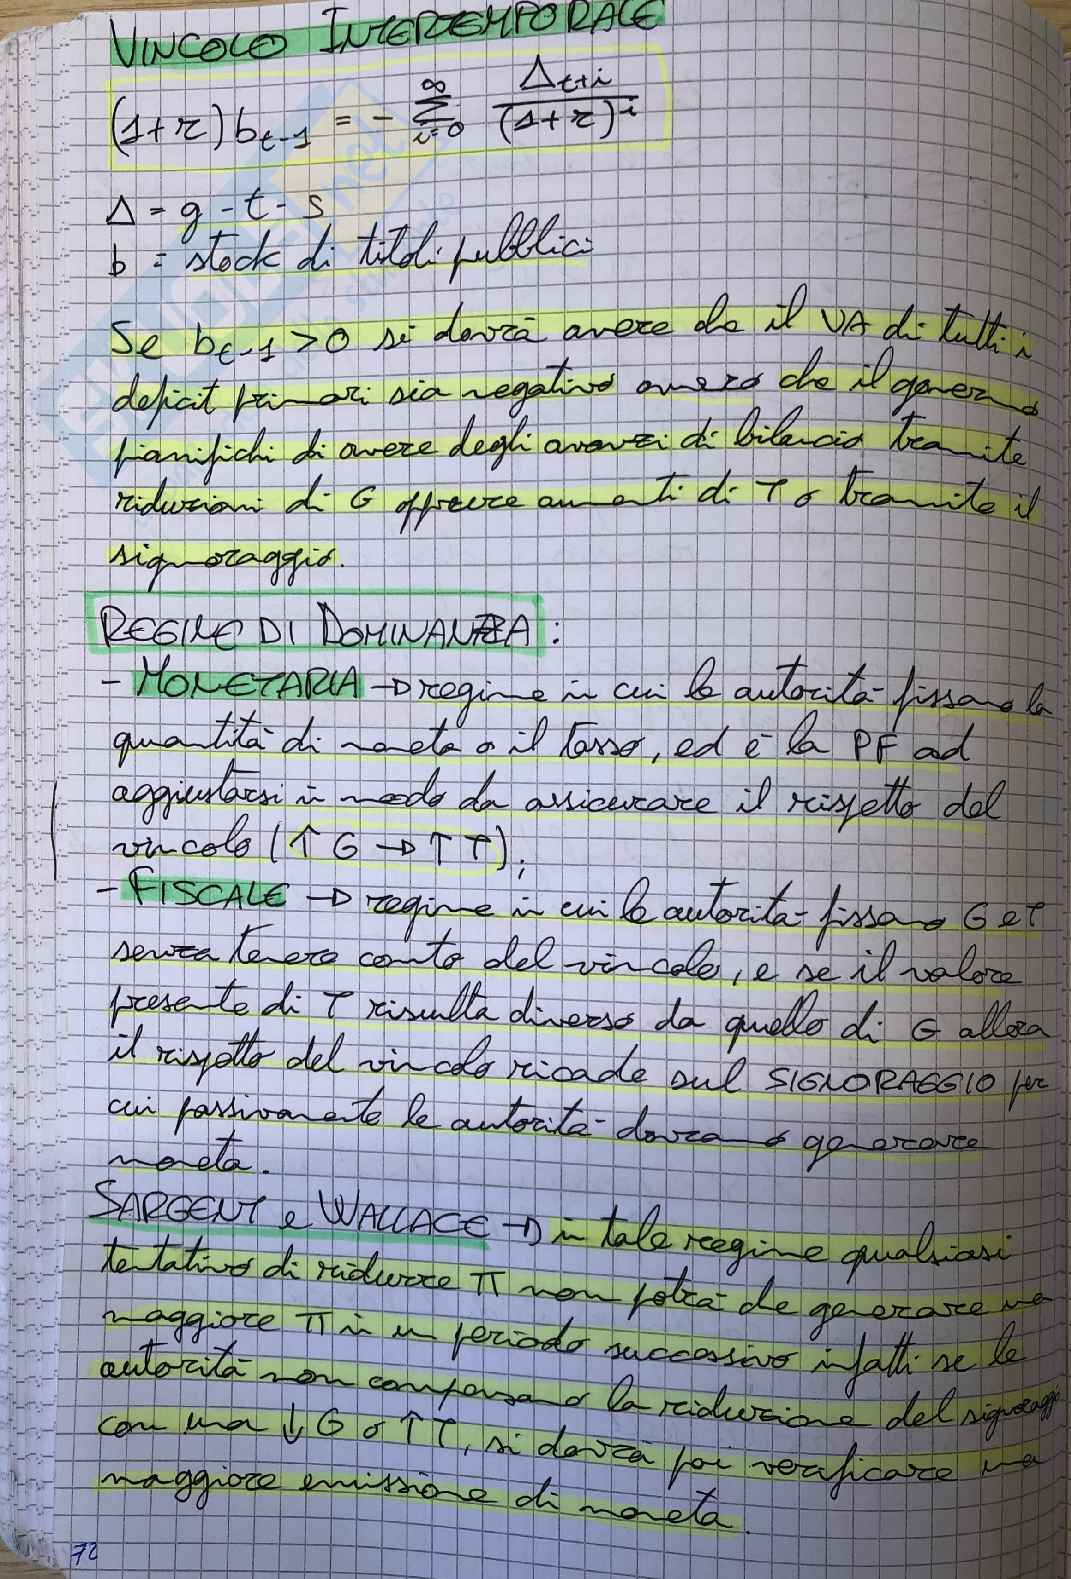 VINCOLO INTERTEMPORALE
(1+r) b_{t-1} = - ∑_{i=0}^{∞} Δ_{t+i} / (1+r)^i
Δ = g - t - s
b = stock di titoli pubblici
Se b_{t-1} > 0 si dovrà avere che il VA di tutti i
deficit primari sia negativo ovvero che il governo
pianifichi di avere degli avanzi di bilancio tramite
riduzioni di G oppure aumenti di T o tramite il
signoraggio.
REGIME DI DOMINANZA:
- MONETARIA → regime in cui le autorità fissano la
quantità di moneta o il tasso, ed è la PF ad
aggiustarsi in modo da assicurare il rispetto del
vincolo (↑ G → ↑ T);
- FISCALE → regime in cui le autorità fissano G e T
senza tenere conto del vincolo, e se il valore
presente di T risulta diverso da quello di G allora
il rispetto del vincolo ricade sul SIGNORAGGIO per
cui passivamente le autorità dovranno generare
moneta.
SARGENT e WALLACE → in tale regime qualsiasi
tentativo di ridurre π non potrà che generare una
maggiore π in un periodo successivo infatti se le
autorità non compensano la riduzione del signoraggio
con una ↓ G o ↑ T, si dovrà poi verificare una
maggiore emissione di moneta.
72